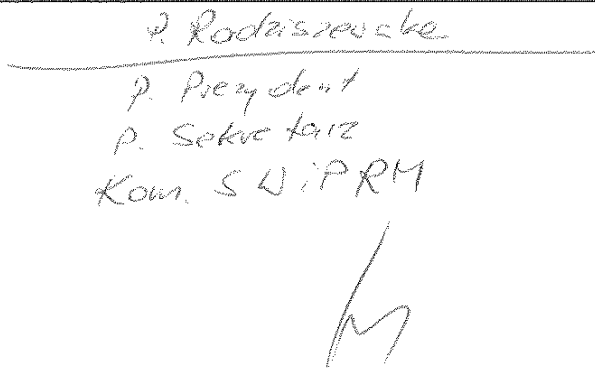 P. Radziszewska
P. Prezydent
P. Sekretarz
Kom. SWiPRM